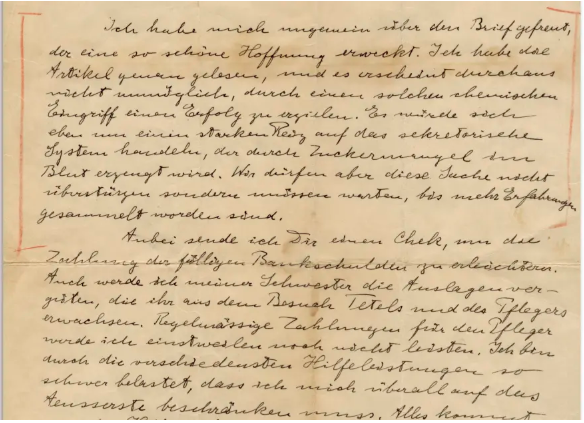 Ich habe mich ungemein über den Brief gefreut,
der eine so schöne Hoffnung erweckt. Ich habe die
Artikel genau gelesen, und es erscheint durchaus
nicht unmöglich, durch einen solchen chemischen
Eingriff einen Erfolg zu erzielen. Es würde sich
eben um einen starken Reiz auf das sekretorische
System handeln, der durch Zuckermangel im
Blut erzeugt wird. Wir dürfen aber diese Sache nicht
überstürzen sondern müssen warten, bis mehr Erfahrungen
gesammelt worden sind.
Anbei sende ich Dir einen Chek, um die
Zahlung der fälligen Bankschulden zu erleichtern.
Auch werde ich meiner Schwester die Auslagen ver-
güten, die ihr aus dem Besuch Tetels und des Pflegers
erwachsen. Regelmässige Zahlungen für den Pfleger
werde ich einstweilen noch nicht leisten. Ich bin
durch die verschiedensten Hilfeleistungen so
schwer belastet, dass ich mich überall auf das
Aeusserste beschränken muss. Alles kommt